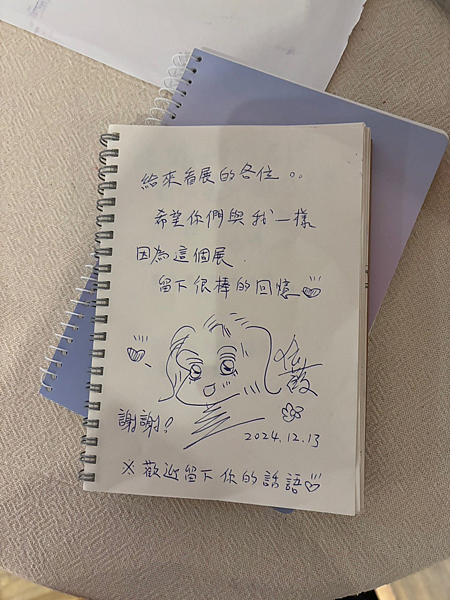 給來看展的各位。。
希望你們與我一樣
因為這個展.
留下很棒的回憶
謝謝!
2024.12.13
※歡迎留下你的話語